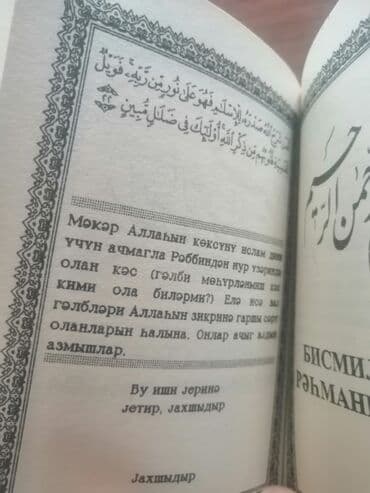 شرح الله صدره للإسلام فهو على نور من ربه فويل
قلوبهم من ذكر الله أولئك في ضلال مبين ٢٢
Мәкәр Аллаһын көксүнү ислам
үчүн ачмагла Рәббиндән нур үзәриндә
олан кәс (гәлби мөһүрләнмиш
кими ола биләрми?) Елә исә вај
гәлбләри Аллаһын зикринә гаршы сәрт
оланларын һалына. Онлар ачыг
азмышлар.
Бу иши јеринә
јетир, јахшыдыр
Јахшыдыр
الرحمن الرحيم
БИСМИЛ
РӘҺМАНИ